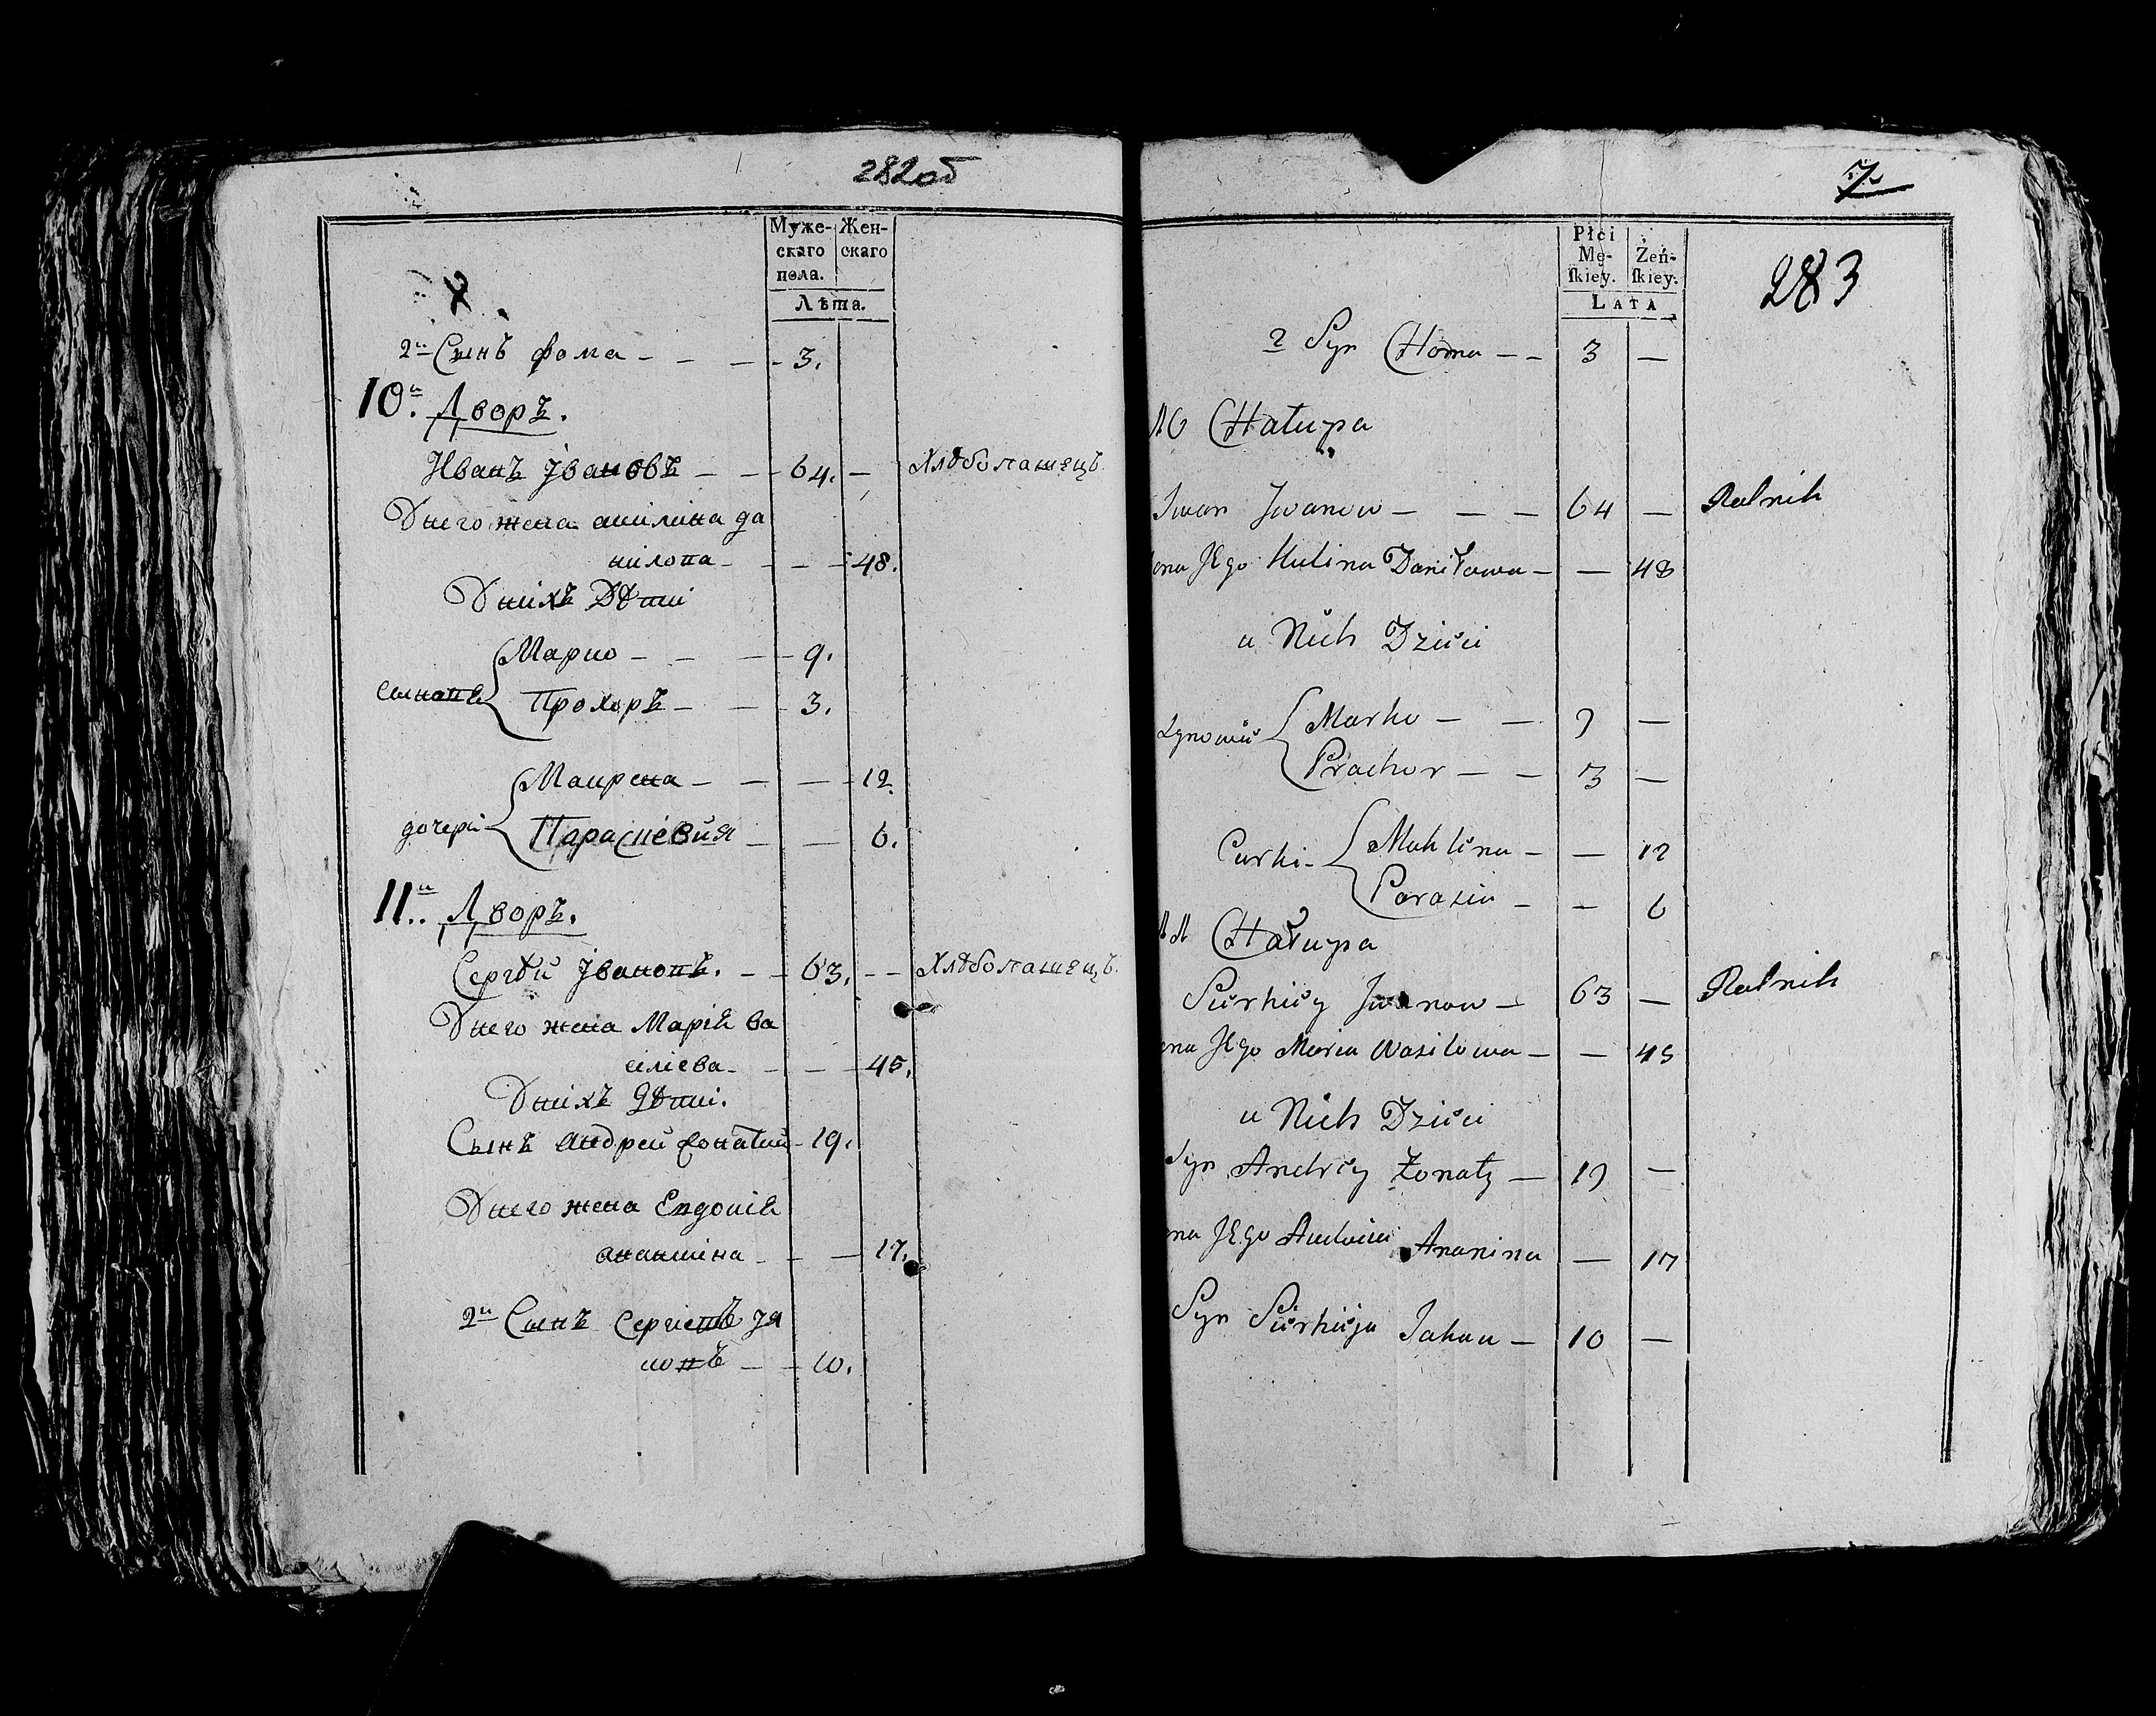 282 об
Муже-
скаго
пола.
Жен-
скаго
Лѣта.
2й Сынъ Фома - - - 3.
10й Дворъ.
Иванъ Івановъ - - 64. - Хлѣбопашецъ.
Унего жена акилина да
нилова - - - 48.
Унихъ Дѣти
сыновѣ
Марко - - - 9.
Прохоръ - - 3.
дочери
Маирена - - - 12.
Параскевия - - 6.
11й Дворъ.
Сергѣй Івановъ. - - 63. - - Хлѣбопашецъ.
Унего жена Марія ва
силіева - - - 45.
Унихъ Дѣти.
Сынъ андрей жонатий - 19.
Унего жена Евдокія
ананина - - - 17.
2й Сынъ Сергіевъ Ія
ковъ - - 10.
7
283
Płci
Mę-
ſkiey.
Żeń-
ſkiey.
LATA
2 Syn Choma - - 3 -
10 Chałupa
Iwan Iwanow - - - 64 - Rolnik
ona Jego Kulina Daniłowa - - 48
u Nich Dzieci
Synowie
Marko - - 9 -
Prachor - - 3 -
Curki -
Mahlina - - 12
Parasia - - 6
11 Chałupa
Sierhiey Iwanow - 63 - Rolnik
ona Jego Maria Wasilowa - - 45
u Nich Dzieci
Syn Andriy Żonaty - 19 -
ona Jego Audocia Ananina - 17
Syn Sierhieja Jakau - 10 -